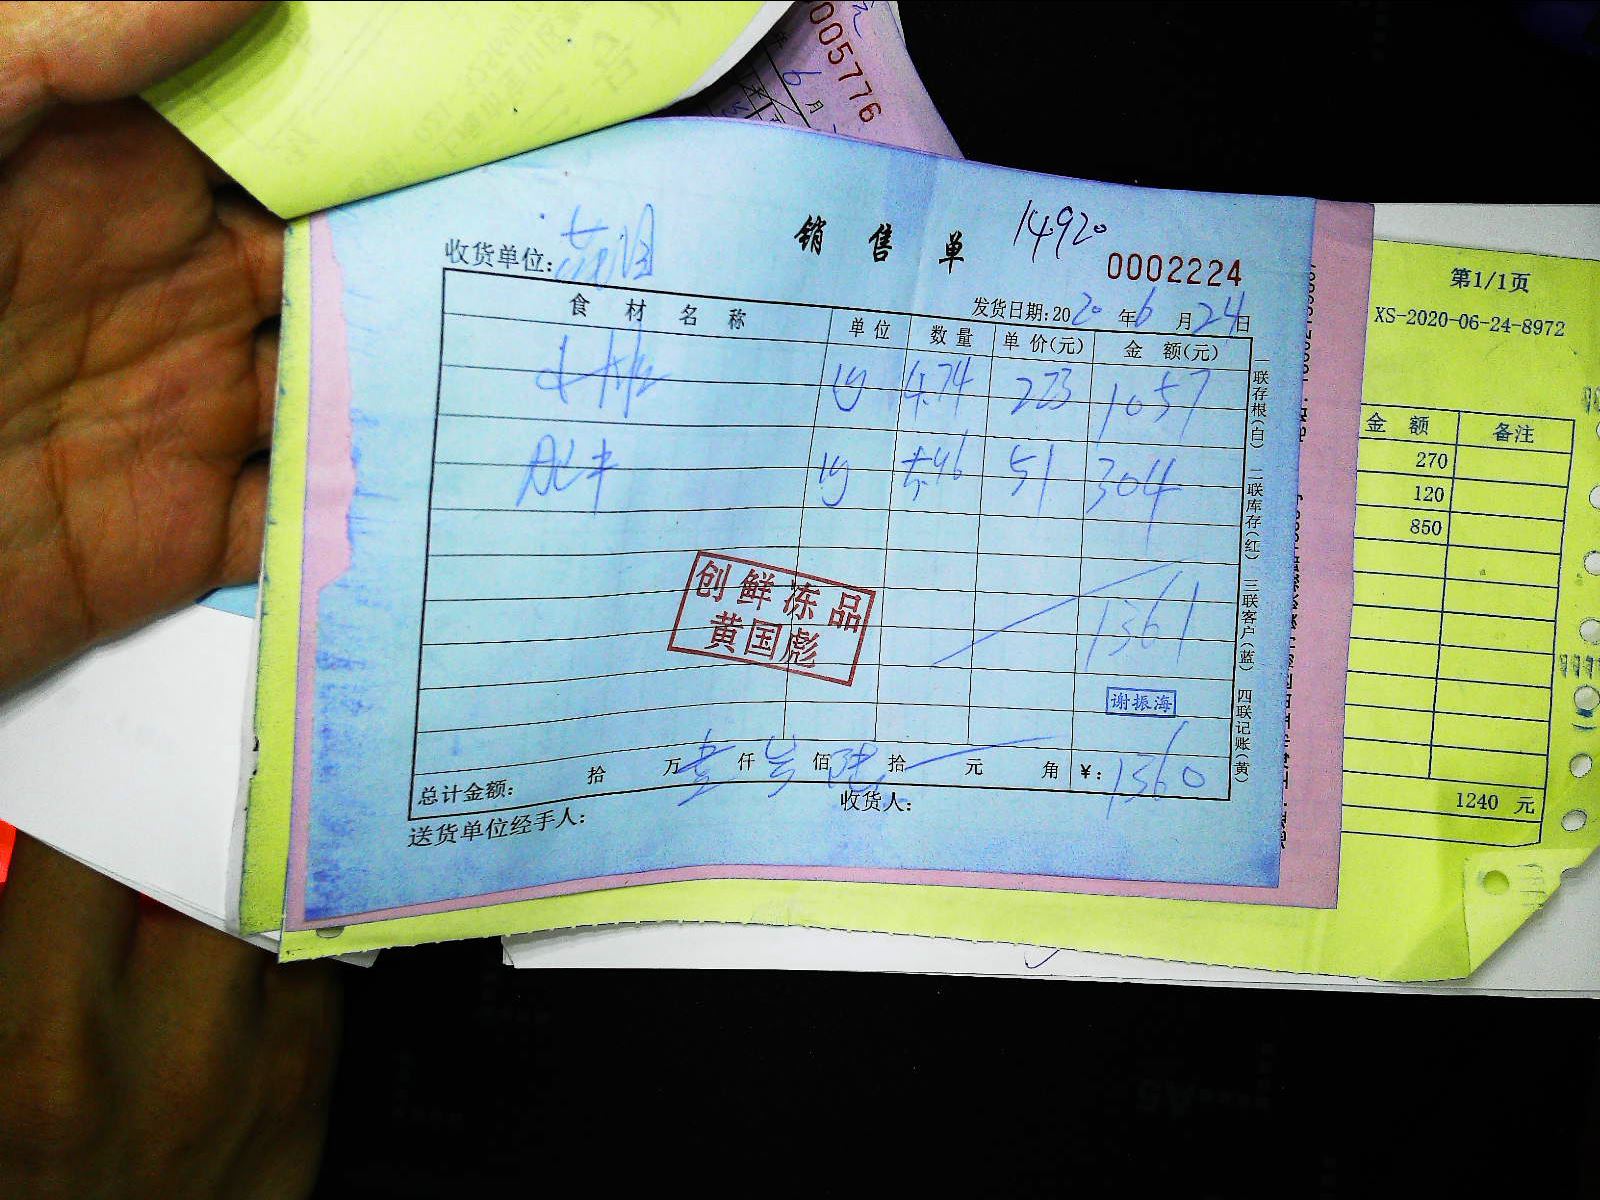 0005776
6 月
销售单 14920
收货单位:
0002224
发货日期:2020年6月24日
食材名称 单位 数量 单价(元) 金额(元)
4.74 223 1057
5.96 51 304
1361
创鲜冻品
黄国彪
谢振海
总计金额: 拾 万壹仟叁佰陆拾 元 角 ¥:1360
送货单位经手人: 收货人:
一联存根(白) 二联库存(红) 三联客户(蓝) 四联记账(黄)
第1/1页
XS-2020-06-24-8972
金额 备注
270
120
850
1240 元